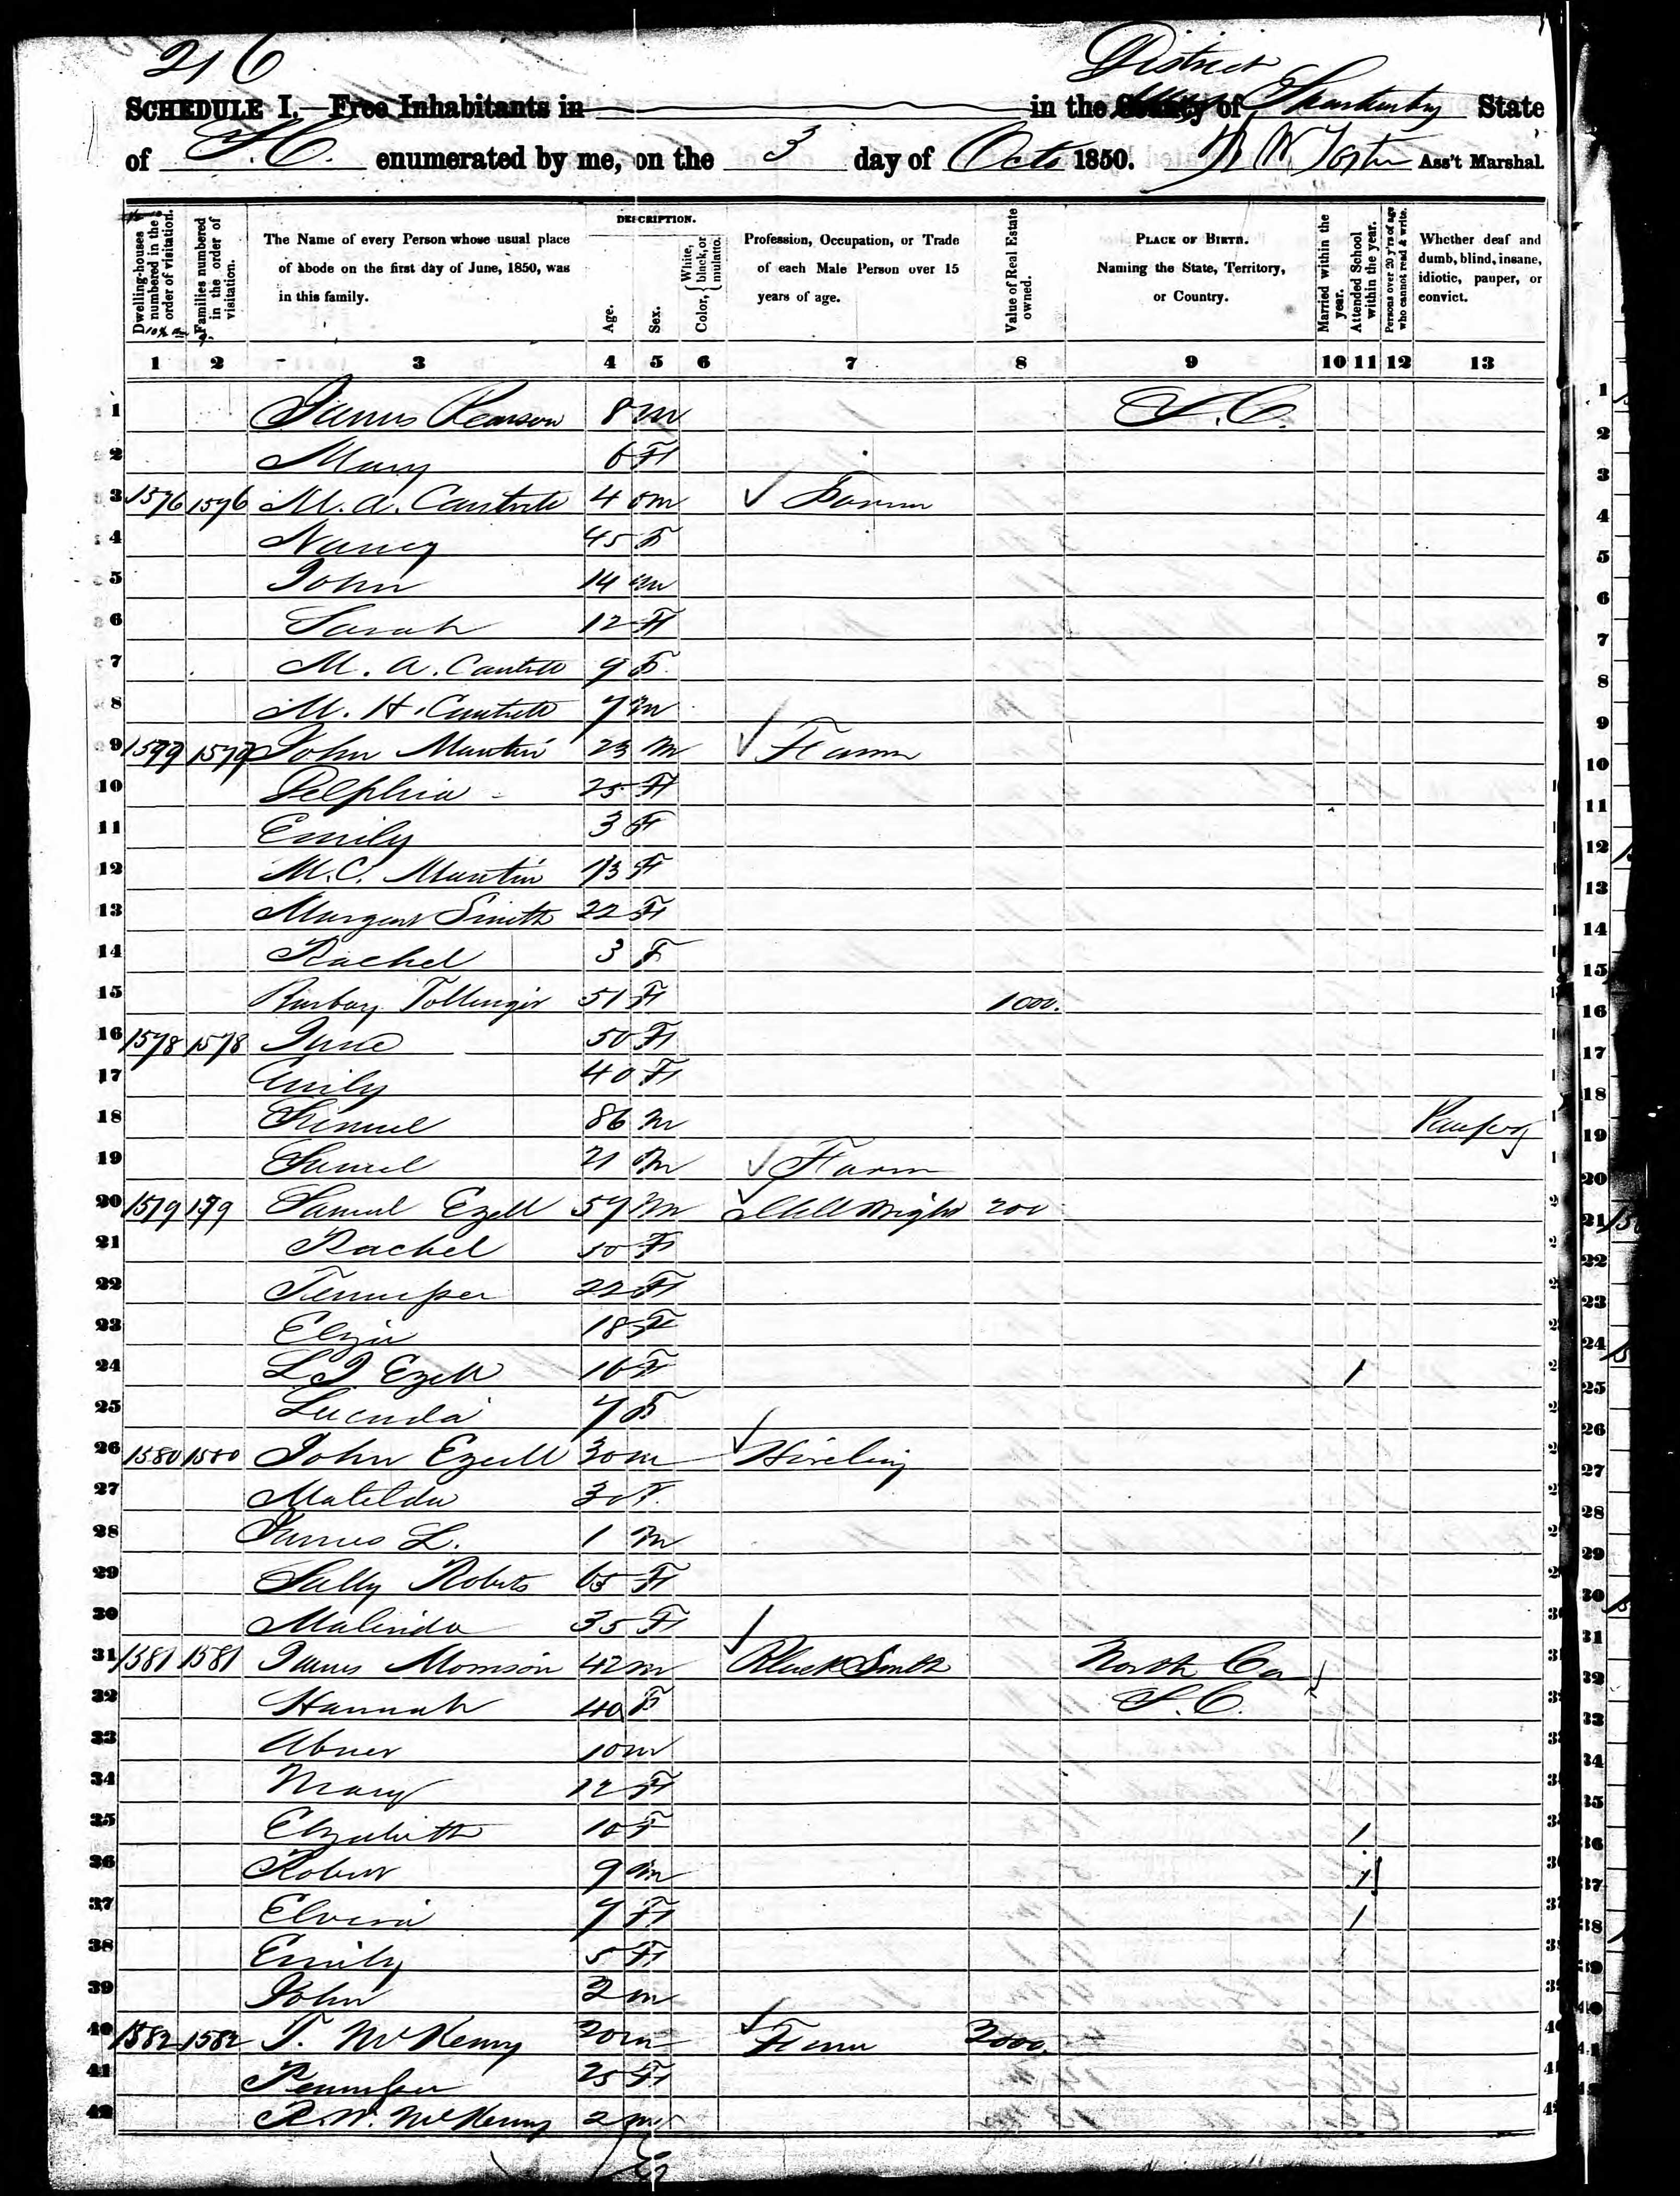 216
District
SCHEDULE I.—Free Inhabitants in in the County of Spartanburg State
of S.C. enumerated by me, on the 3 day of Octo 1850. Ass't Marshal.
Dwelling-houses numbered in the order of visitation.
Families numbered in the order of visitation.
The Name of every Person whose usual place of abode on the first day of June, 1850, was in this family.
DESCRIPTION.
Age.
Sex.
Color, White, black, or mulatto.
Profession, Occupation, or Trade of each Male Person over 15 years of age.
Value of Real Estate owned.
PLACE OF BIRTH. Naming the State, Territory, or Country.
Married within the year.
Attended School within the year.
Persons over 20 y'rs of age who cannot read & write.
Whether deaf and dumb, blind, insane, idiotic, pauper, or convict.
1 2 3 4 5 6 7 8 9 10 11 12 13
1 James Pearson 8 m S.C.
2 Mary 6 F
3 1576 1576 M. A. 40 m Farm
4 Nancy 45 F
5 John 14 m
6 Sarah 12 F
7 M. A. 9 F
8 M. H. 7 m
9 1577 1577 John Martin 23 m Farm
10 Delphia 25 F
11 Emily 3 F
12 M. C. Martin 13 F
13 Margaret Smith 22 F
14 Rachel 3 F
15 51 F 1000.
16 1578 1578 Jane 50 F
17 Emily 40 F
18 86 m
19 Samuel 21 m Farm
20 1579 179 Samul Ezell 57 m Mill Wright 200
21 Rachel 50 F
22 22 F
23 Eliza 18 F
24 L J Ezell 16 F 1
25 Lucinda 7 F
26 1580 1580 John Ezell 30 m Hireling
27 Matilda 30 F.
28 James L. 1 m
29 Sally Roberts 65 F
30 Malinda 35 F
31 1581 1581 James Morrison 42 m Black Smith North Ca
32 Hannah 40 F S.C.
33 Abner 10 m
34 Mary 12 F
35 Elizabeth 10 F 1
36 Robert 9 m 1
37 7 F 1
38 Emily 5 F
39 John 2 m
40 1582 1582 T. 20 m Farm 2000.
41 25 F
42 R. W. 2 m